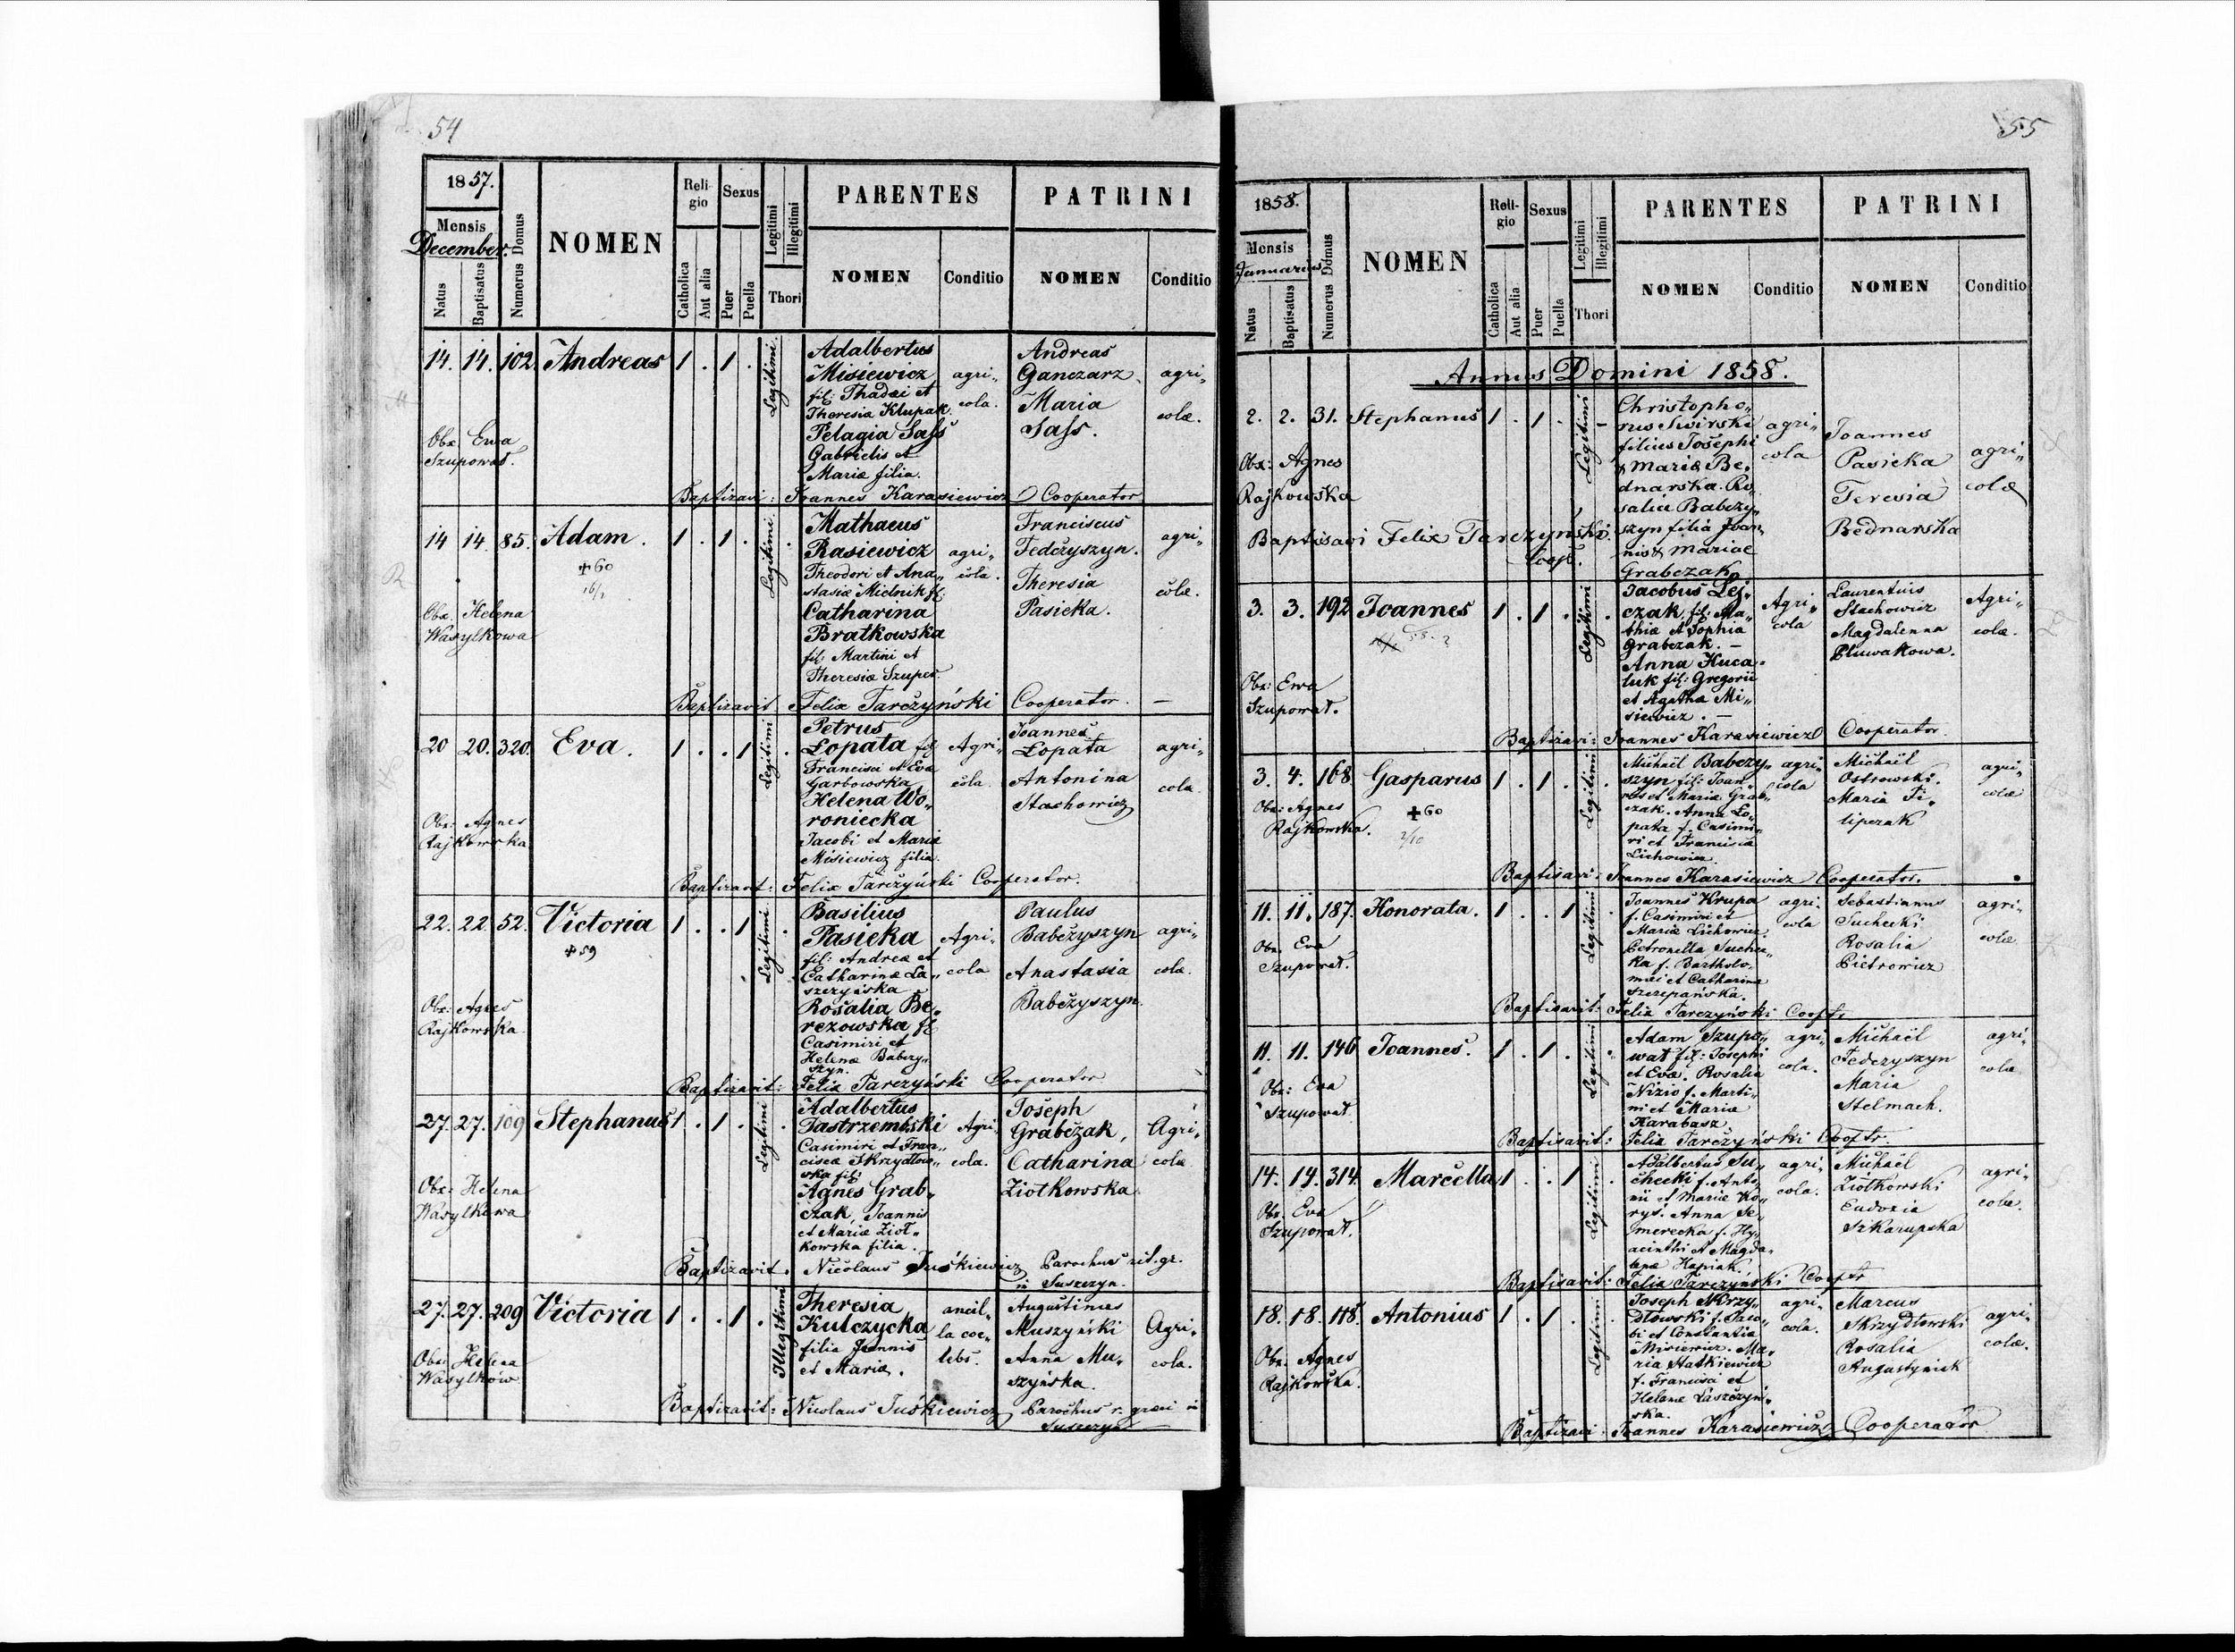 54
1857.
Mensis
December.
Natus
Baptisatus
Numerus Domus
NOMEN
Religio
Catholica
Aut alia
Sexus
Puer
Puella
Legitimi
Illegitimi
Thori
PARENTES
NOMEN
Conditio
PATRINI
NOMEN
Conditio
14. 14. 102. Andreas 1 . 1 .
Legitimi
Adalbertus
Misiewicz
fil: Thadæi et
Theresia Klupak.
Pelagia Sass
Gabrielis et
Mariæ filia.
agri„
cola.
Andreas
Ganczarz.
Maria
Sass.
agri„
colæ.
Obx. Ewa
Szupowat.
Baptizavi: Joannes Karasiewicz Cooperator
14 14. 85. Adam. 1 . 1 .
+60
16/1
Legitimi
Mathaeus
Rasiewicz
Theodori et Ana„
stasiæ Mielnik fil
Catharina
Bratkowska
fil: Martini et
Theresiæ Szupes.
agri„
cola.
Franciscus
Fedczyszyn.
Theresia
Pasieka.
agri„
colæ.
Obx. Helena
Wasylkowa
Baptizavit Felix Tarczyński Cooperator. —
20 20. 320. Eva. 1 . . 1
Legitimi
Petrus
Łopata fil
Francisci et Evæ
Garbowska
Helena Wo„
roniecka
Jacobi et Maria
Misiewicz filia.
Agri„
cola
Joannes
Łopata
Antonina
Stachowicz
agri„
cola
Obx: Agnes
Rajkowska
Baptizavit: Felix Tarczyński Cooperator.
22. 22. 52. Victoria 1 . . 1
+59
Legitimi
Basilius
Pasieka
fil: Andreæ et
Catharinæ La„
szczyńska
Rosalia Be„
rezowska fil
Casimiri et
Helenæ Babczy„
szyn.
Agri„
cola
Paulus
Babczyszyn
Anastasia
Babczyszyn
agri„
colæ.
Obx: Agnes
Rajkowska
Baptizavit: Felix Tarczyński Cooperator
27. 27. 109 Stephanus 1 . 1 .
Legitimi
Adalbertus
Jastrzembski
Casimiri et Fran„
ciscæ Skrzydłow„
ska fil:
Agnes Grab„
czak, Joannis
et Mariæ Zioł„
kowska filia.
Agri„
cola.
Joseph
Grabczak,
Catharina
Ziołkowska
Agri„
colæ
Obx: Helena
Wasylkowa
Baptizavit. Nicolaus Juśkiewicz Parochus rit. gr.
in Suszczyn.
27. 27. 209 Victoria 1 . . 1 .
Illegitimi
Theresia
Kulczycka
filia Joannis
et Mariæ.
ancil„
la coe„
lebs.
Augustinus
Muszyński
Anna Mu„
szyńska.
Agri„
cola.
Obx: Helena
Wasylków
Baptizavit: Nicolaus Juśkiewicz Parochus r. græci in
Suszczyn
55
1858.
Mensis
Januarius
Natus
Baptisatus
Numerus Domus
NOMEN
Religio
Catholica
Aut alia
Sexus
Puer
Puella
Legitimi
Illegitimi
Thori
PARENTES
NOMEN
Conditio
PATRINI
NOMEN
Conditio
Annus Domini 1858.
2. 2. 31. Stephanus 1 . 1 .
Legitimi
Christopho„
rus Swirski
filius Josephi
& Mariæ Be„
dnarska. Ro„
salia Babczy„
szyn filia Joan„
nis & Mariae
Grabczak.
agri„
cola
Joannes
Pasieka
Teresia
Bednarska
agri„
colæ
Obx: Agnes
Rajkowska
Baptisavi Felix Tarczyński.
Coop.
3. 3. 192 Joannes 1 . 1 .
Legitimi
Jacobus Lej„
czak, fil: Ma„
thiæ et Sophia
Grabczak. —
Anna Huca„
luk fil: Gregorii
et Agatha Mi„
siewicz. —
Agri„
cola
Laurentuis
Stachowicz
Magdalenna
Pluwakowa.
Agri„
colæ.
Obx: Ewa
Szupowat.
Baptizavi: Joannes Karasiewicz Cooperator.
3. 4. 168 Gasparus 1 . 1 .
+60
2/10
Legitimi
Michaël Babczy„
szyn fil: Joan„
nis et Maria Grab„
czak. Anna Lo„
pata f. Casimi„
ri et Francisca
Lichowicz.
agri„
cola
Michaël
Ostrowski.
Maria Fi„
lipczak
agri„
colæ
Obx: Agnes
Rajkowska.
Baptisavi: Joannes Karasiewicz Cooperator.
11. 11. 187. Honorata. 1 . . 1
Legitimi
Joannes Krupa
f. Casimiri et
Mariæ Lichowicz.
Petronella Suchec„
ka f. Bartholo„
mæi et Catharina
Szczepańska.
agri„
cola
Sebastianus
Suchecki
Rosalia
Pietrowicz
agri„
colæ
Obx. Eva
Szupowat.
Baptisavit: Felix Tarczyński Cooptr
11. 11. 146 Joannes. 1 . 1 .
Legitimi
Adam Szupo„
wat fil: Josephi
et Evæ. Rosalia
Nizio f. Marti„
ni et Maria
Karabasz.
agri„
cola.
Michaël
Fedczyszyn
Maria
Stelmach.
agri„
cola
Obx: Eva
Szupowat.
Baptisavit: Felix Tarczyński Cooptr.
14. 14. 314. Marcella 1 . . 1 .
Legitimi
Adalbertus Su„
checki f. Anto„
nii et Mariæ Ko„
rys. Anna Se„
merecka f. Hy„
acinthi et Magda„
lenæ Hapiak.
agri„
cola.
Michaël
Ziołkowski
Eudoxia
Szkarupska
agri„
colæ.
Obx. Eva
Szupowat.
Baptisavit: Felix Tarczyński Cooptr
18. 18. 118. Antonius 1 . 1 .
Legitimi
Joseph Skrzy„
dłowski f. Jaco„
bi et Constantia
Misiewicz. Ma„
ria Hatkiewicz
f. Francisci et
Helenæ Łaszczyń„
ska.
agri„
cola.
Marcus
Skrzydłowski
Rosalia
Augustyniek
agri„
colæ.
Obx. Agnes
Rajkowska.
Baptizavi: Joannes Karasiewicz Cooperator